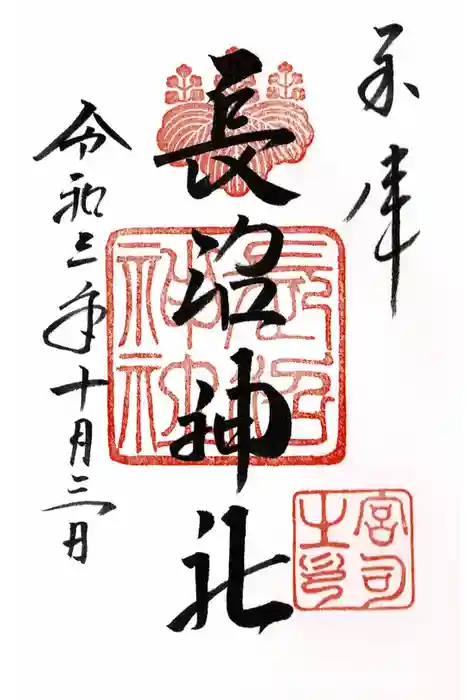 長沼神社
令和三年十月三日
長沼
神社
宮司
之印